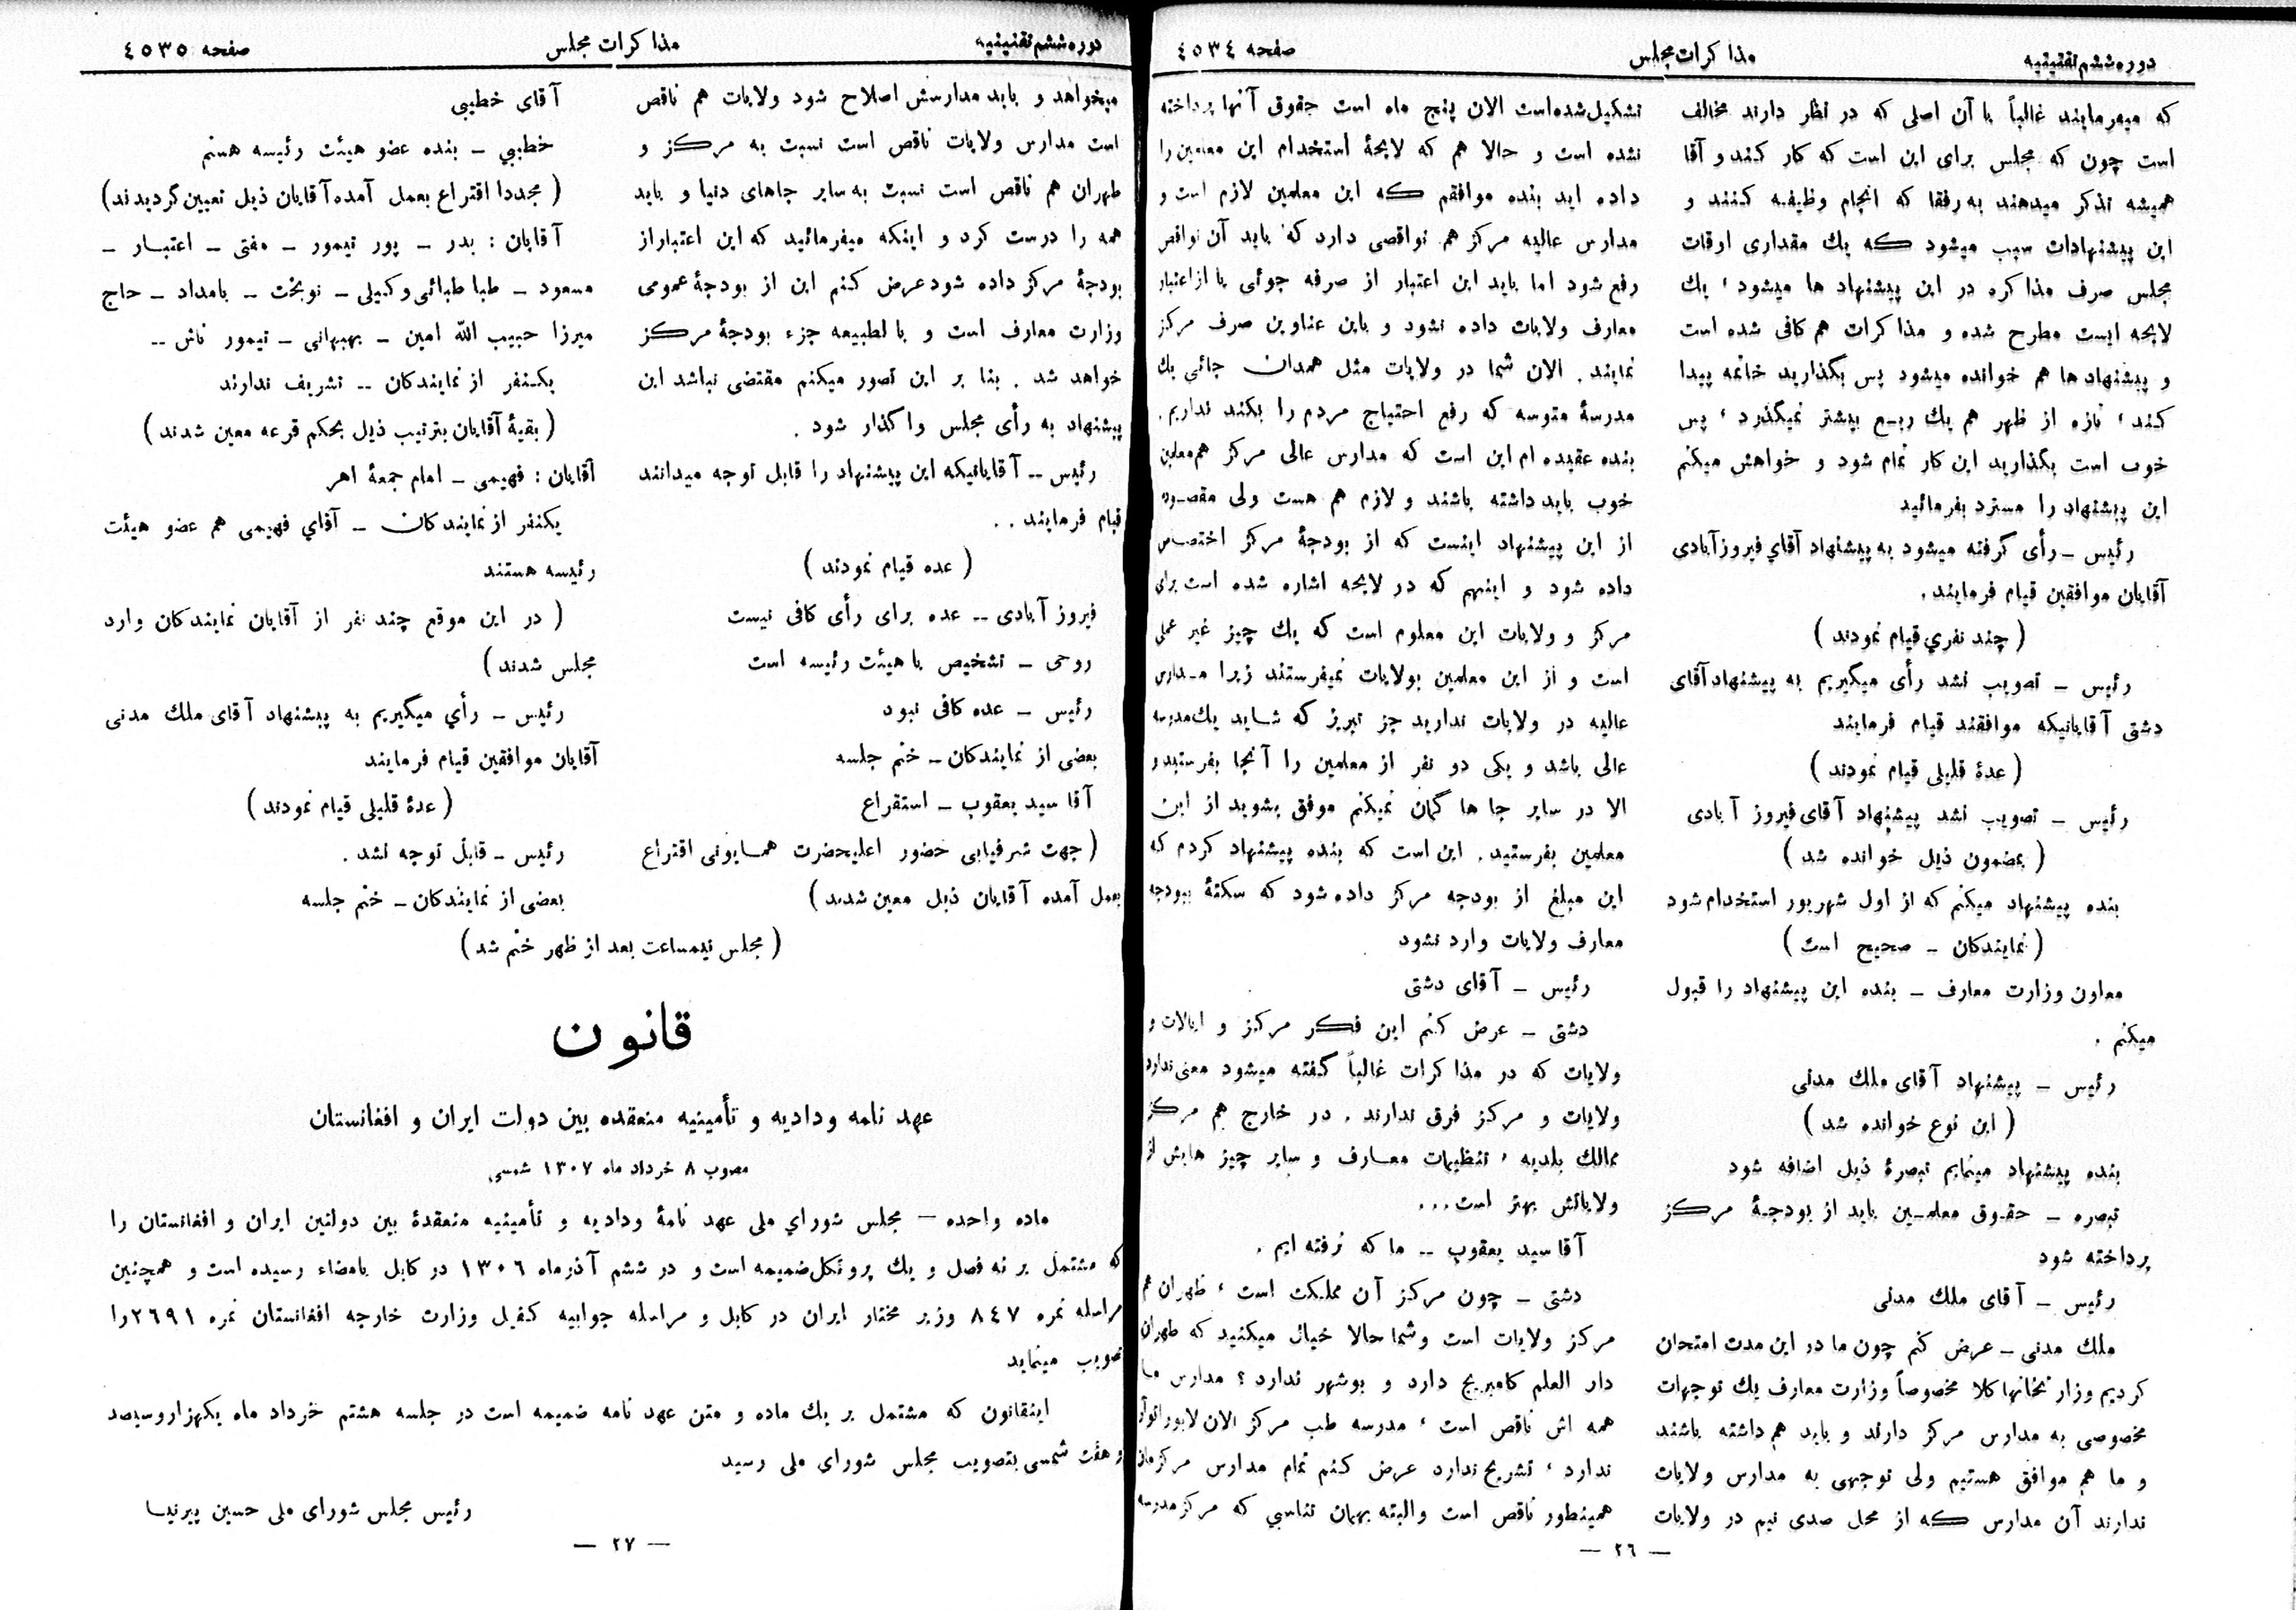 دوره ششم تقنینیه
مذاکرات مجلس
صفحه ٤٥٣٤
که میفرمایند غالباً با آن اصلی که در نظر دارند مخالف
است چون که مجلس برای این است که کار کنند و آقا
همیشه تذکر میدهند به رفقا که انجام وظیفه کنند و
این پیشنهادات سبب میشود که یك مقداری اوقات
مجلس صرف مذاکره در این پیشنهاد ها میشود ، یك
لایحه ایست مطرح شده و مذاکرات هم کافی شده است
و پیشنهاد ها هم خوانده میشود پس بگذارید خاتمه پیدا
کند ، تازه از ظهر هم یك ربع بیشتر نمیگذرد ، پس
خوب است بگذارید این کار تمام شود و خواهش میکنم
این پیشنهاد را مسترد بفرمائید
رئیس ـ رأی گرفته میشود به پیشنهاد آقاي فیروزآبادی
آقایان موافقین قیام فرمایند .
( چند نفري قیام نمودند )
رئیس ـ تصویب نشد رأی میگیریم به پیشنهاد آقای
دشتی آقایانیکه موافقند قیام فرمایند
( عدۀ قلیلی قیام نمودند )
رئیس ـ تصویب نشد پیشنهاد آقای فیروز آبادی
( بمضمون ذیل خوانده شد )
بنده پیشنهاد میکنم که از اول شهریور استخدام شود
( نمایندکان ـ صحیح است )
معاون وزارت معارف ـ بنده این پیشنهاد را قبول
میکنم .
رئیس ـ پیشنهاد آقای ملك مدنی
( این نوع خوانده شد )
بنده پیشنهاد مینمایم تبصرۀ ذیل اضافه شود
تبصره ـ حقوق معلمین باید از بودجۀ مرکز
پرداخته شود
رئیس ـ آقای ملك مدنی
ملك مدنی ـ عرض کنم چون ما در این مدت امتحان
کردیم وزارتخانها کلا مخصوصاً وزارت معارف یك توجهات
مخصوصی به مدارس مرکز دارند و باید هم داشته باشند
و ما هم موافق هستیم ولی توجهی به مدارس ولایات
ندارند آن مدارس که از محل صدی نیم در ولایات
تشکیل شده است الان پنج ماه است حقوق آنها پرداخته
نشده است و حالا هم که لایحۀ استخدام این معلمین را
داده اید بنده موافقم که این معلمین لازم است و
مدارس عالیه مرکز هم نواقصی دارد که باید آن نواقص
رفع شود اما باید این اعتبار از صرفه جوئی یا از اعتبار
معارف ولایات داده نشود و باین عناوین صرف مرکز
نمایند . الان شما در ولایات مثل همدان جائی یك
مدرسۀ متوسه که رفع احتیاج مردم را بکند نداریم .
بنده عقیده ام این است که مدارس عالی مرکز هم معلمین
خوب باید داشته باشند و لازم هم هست ولی مقصودم
از این پیشنهاد اینست که از بودجۀ مرکز اختصاص
داده شود و اینهم که در لایحه اشاره شده است برای
مرکز و ولایات این معلوم است که یك چیز غیر عملی
است و از این معلمین بولایات نمیفرستند زیرا مدارس
عالیه در ولایات ندارید جز تبریز که شاید یك مدرسه
عالی باشد و یکی دو نفر از معلمین را آنجا بفرستید و
الا در سایر جا ها گمان نمیکنم موفق بشوید از این
معلمین بفرستید . این است که بنده پیشنهاد کردم که
این مبلغ از بودجه مرکز داده شود که سکتۀ ببودجه
معارف ولایات وارد نشود
رئیس ـ آقای دشتی
دشتی ـ عرض کنم این فکر مرکز و ایالات و
ولایات که در مذاکرات غالباً گفته میشود معنی ندارد
ولایات و مرکز فرق ندارند . در خارج هم مرکز
ممالك بلدیه ، تنظیمات معارف و سایر چیز هایش از
ولایاتش بهتر است...
آقا سید یعقوب ـ ما که نرفته ایم .
دشتی ـ چون مرکز آن مملکت است ، طهران هم
مرکز ولایات است و شما حالا خیال میکنید که طهران
دار العلم کامبریج دارد و بوشهر ندارد ؟ مدارس ما
همه اش ناقص است ، مدرسه طب مرکز الان لابوراتوآر
ندارد ، تشریح ندارد عرض کنم تمام مدارس مرکزمان
همینطور ناقص است والبته بهمان تناسبي که مرکز مدرسه
— ٢٦ —
دوره ششم تقنینیه
مذاکرات مجلس
صفحه ٤٥٣٥
میخواهد و باید مدارسش اصلاح شود ولایات هم ناقص
است مدارس ولایات ناقص است نسبت به مرکز و
طهران هم ناقص است نسبت به سایر جاهای دنیا و باید
همه را درست کرد و اینکه میفرمائید که این اعتبار از
بودجۀ مرکز داده شود عرض کنم این از بودجۀ عمومی
وزارت معارف است و بالطبیعه جزء بودجۀ مرکز
خواهد شد . بنا بر این تصور میکنم مقتضی نباشد این
پیشنهاد به رأی مجلس واگذار شود .
رئیس ـ آقایانیکه این پیشنهاد را قابل توجه میدانند
قیام فرمایند . .
( عده قیام نمودند )
فیروز آبادی ـ عده برای رأی کافی نیست
روحی ـ تشخیص با هیئت رئیسه است
رئیس ـ عده کافی نبود
بعضی از نمایندکان ـ ختم جلسه
آقا سید یعقوب ـ استقراع
( جهت شرفیابی حضور اعلیحضرت همایونی اقتراع
بعمل آمده آقایان ذیل معین شدند )
آقای خطیبی
خطیبي ـ بنده عضو هیئت رئیسه هستم
( مجددا اقتراع بعمل آمده آقایان ذیل تعیین گردیدند )
آقایان : بدر ـ پور تیمور ـ مفتی ـ اعتبار ـ
مسعود ـ طباطبائی وکیلی ـ نوبخت ـ بامداد ـ حاج
میرزا حبیب الله امین ـ بهبهانی ـ تیمور تاش ـ
یکنفر از نمایندکان ـ تشریف ندارند
( بقیۀ آقایان بترتیب ذیل بحکم قرعه معین شدند )
آقایان : فهیمی ـ امام جمعۀ اهر
یکنفر از نمایندکان ـ آقاي فهیمی هم عضو هیئت
رئیسه هستند
( در این موقع چند نفر از آقایان نمایندکان وارد
مجلس شدند )
رئیس ـ رأي میگیریم به پیشنهاد آقای ملك مدنی
آقایان موافقین قیام فرمایند
( عدۀ قلیلی قیام نمودند )
رئیس ـ قابل توجه نشد .
بعضی از نمایندکان ـ ختم جلسه
( مجلس نیمساعت بعد از ظهر ختم شد )
قانون
عهد نامه ودادیه و تأمینیه منعقده بین دولت ایران و افغانستان
مصوب ٨ خرداد ماه ١٣٠٧ شمسی
ماده واحده — مجلس شوراي ملی عهد نامۀ ودادیه و تأمینیه منعقدۀ بین دولتین ایران و افغانستان را
که مشتمل بر نه فصل و یك پروتکل ضمیمه است و در ششم آذرماه ١٣٠٦ در کابل بامضاء رسیده است و همچنین
مراسله نمره ٨٤٧ وزیر مختار ایران در کابل و مراسله جوابیه کفیل وزارت خارجه افغانستان نمره ٢٦٩١ را
تصویب مینماید
اینقانون که مشتمل بر یك ماده و متن عهد نامه ضمیمه است در جلسه هشتم خرداد ماه یکهزاروسیصد
و هفت شمسی بتصویب مجلس شورای ملی رسید
رئیس مجلس شورای ملی حسین پیرنیا
— ٢٧ —